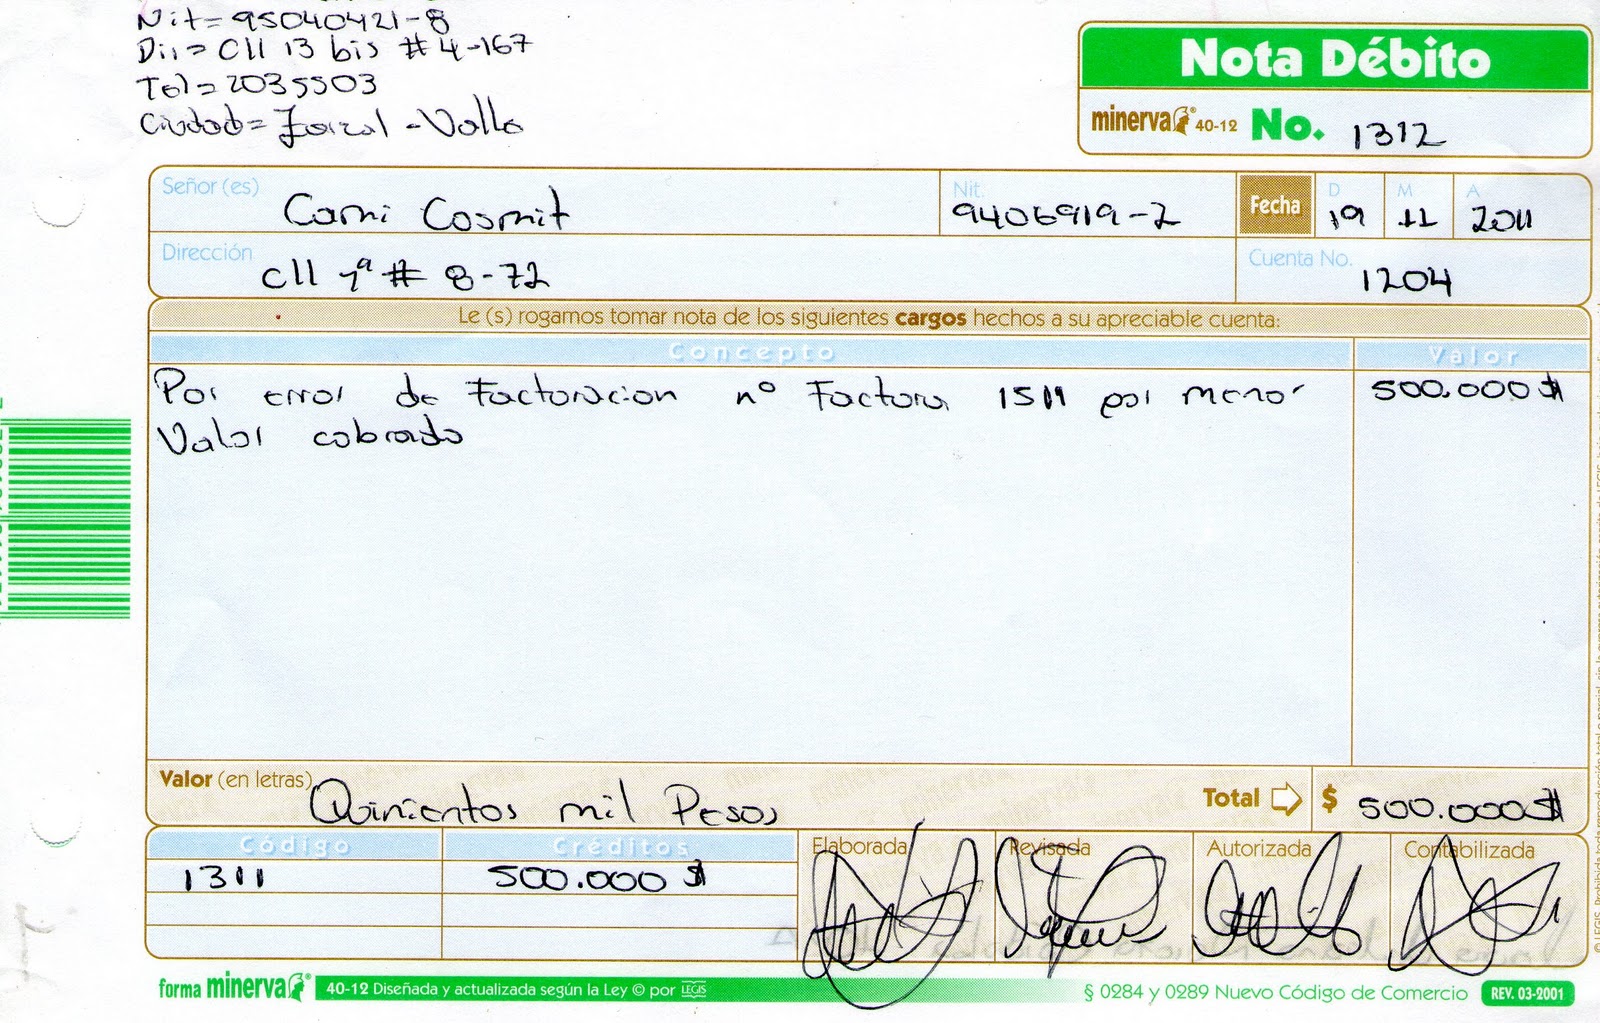 Nit = 95040421-8
Dir = Cll 13 bis # 4-167
Tel = 2035503
Ciudad = Zarzal - Valle
Nota Débito
minerva® 40-12 No. 1312
Señor (es) Cami Cosmit
Nit. 9406919-2
Fecha D 19 M 11 A 2011
Dirección cll 7ª # 8-72
Cuenta No. 1204
Le (s) rogamos tomar nota de los siguientes cargos hechos a su apreciable cuenta:
Concepto Valor
Por error de Facturacion nº Factura 1511 por menor 500.000 $
Valor cobrado
Valor (en letras) Quinientos mil Pesos
Total $ 500.000 $
Código Créditos Elaborada Revisada Autorizada Contabilizada
1311 500.000 $
forma minerva® 40-12 Diseñada y actualizada según la Ley © por LEGIS
§ 0284 y 0289 Nuevo Código de Comercio REV. 03-2001